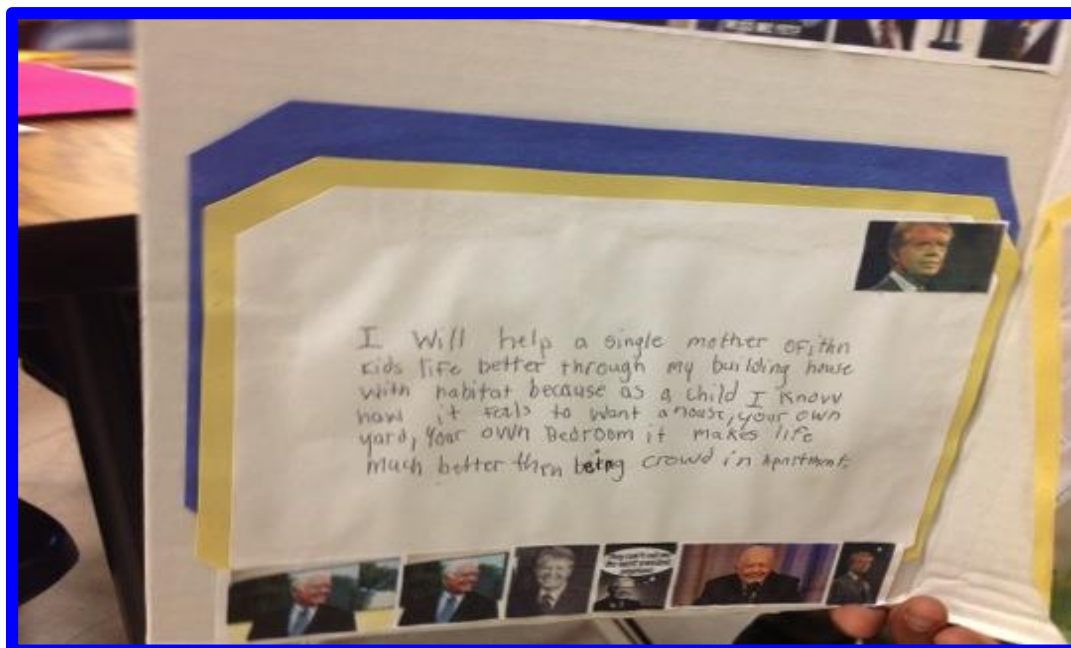 I Will help a single mother
Kids life better through my building house
with habitat because as a child I Know
how it feels to want a house, your own
yard, Your own Bedroom it makes life
much better then being crowd in Apartment.